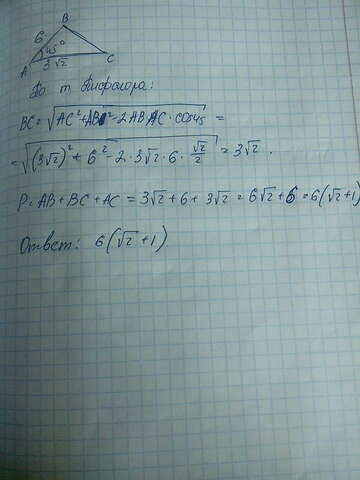 B
6
45°
A
C
3√2
По т. Пифагора:
BC = √(AC² + AB² - 2AB·AC·cos45) =
= √((3√2)² + 6² - 2·3√2·6·√2/2) = 3√2.
P = AB + BC + AC = 3√2 + 6 + 3√2 = 6√2 + 6 = 6(√2+1)
Ответ: 6(√2+1)